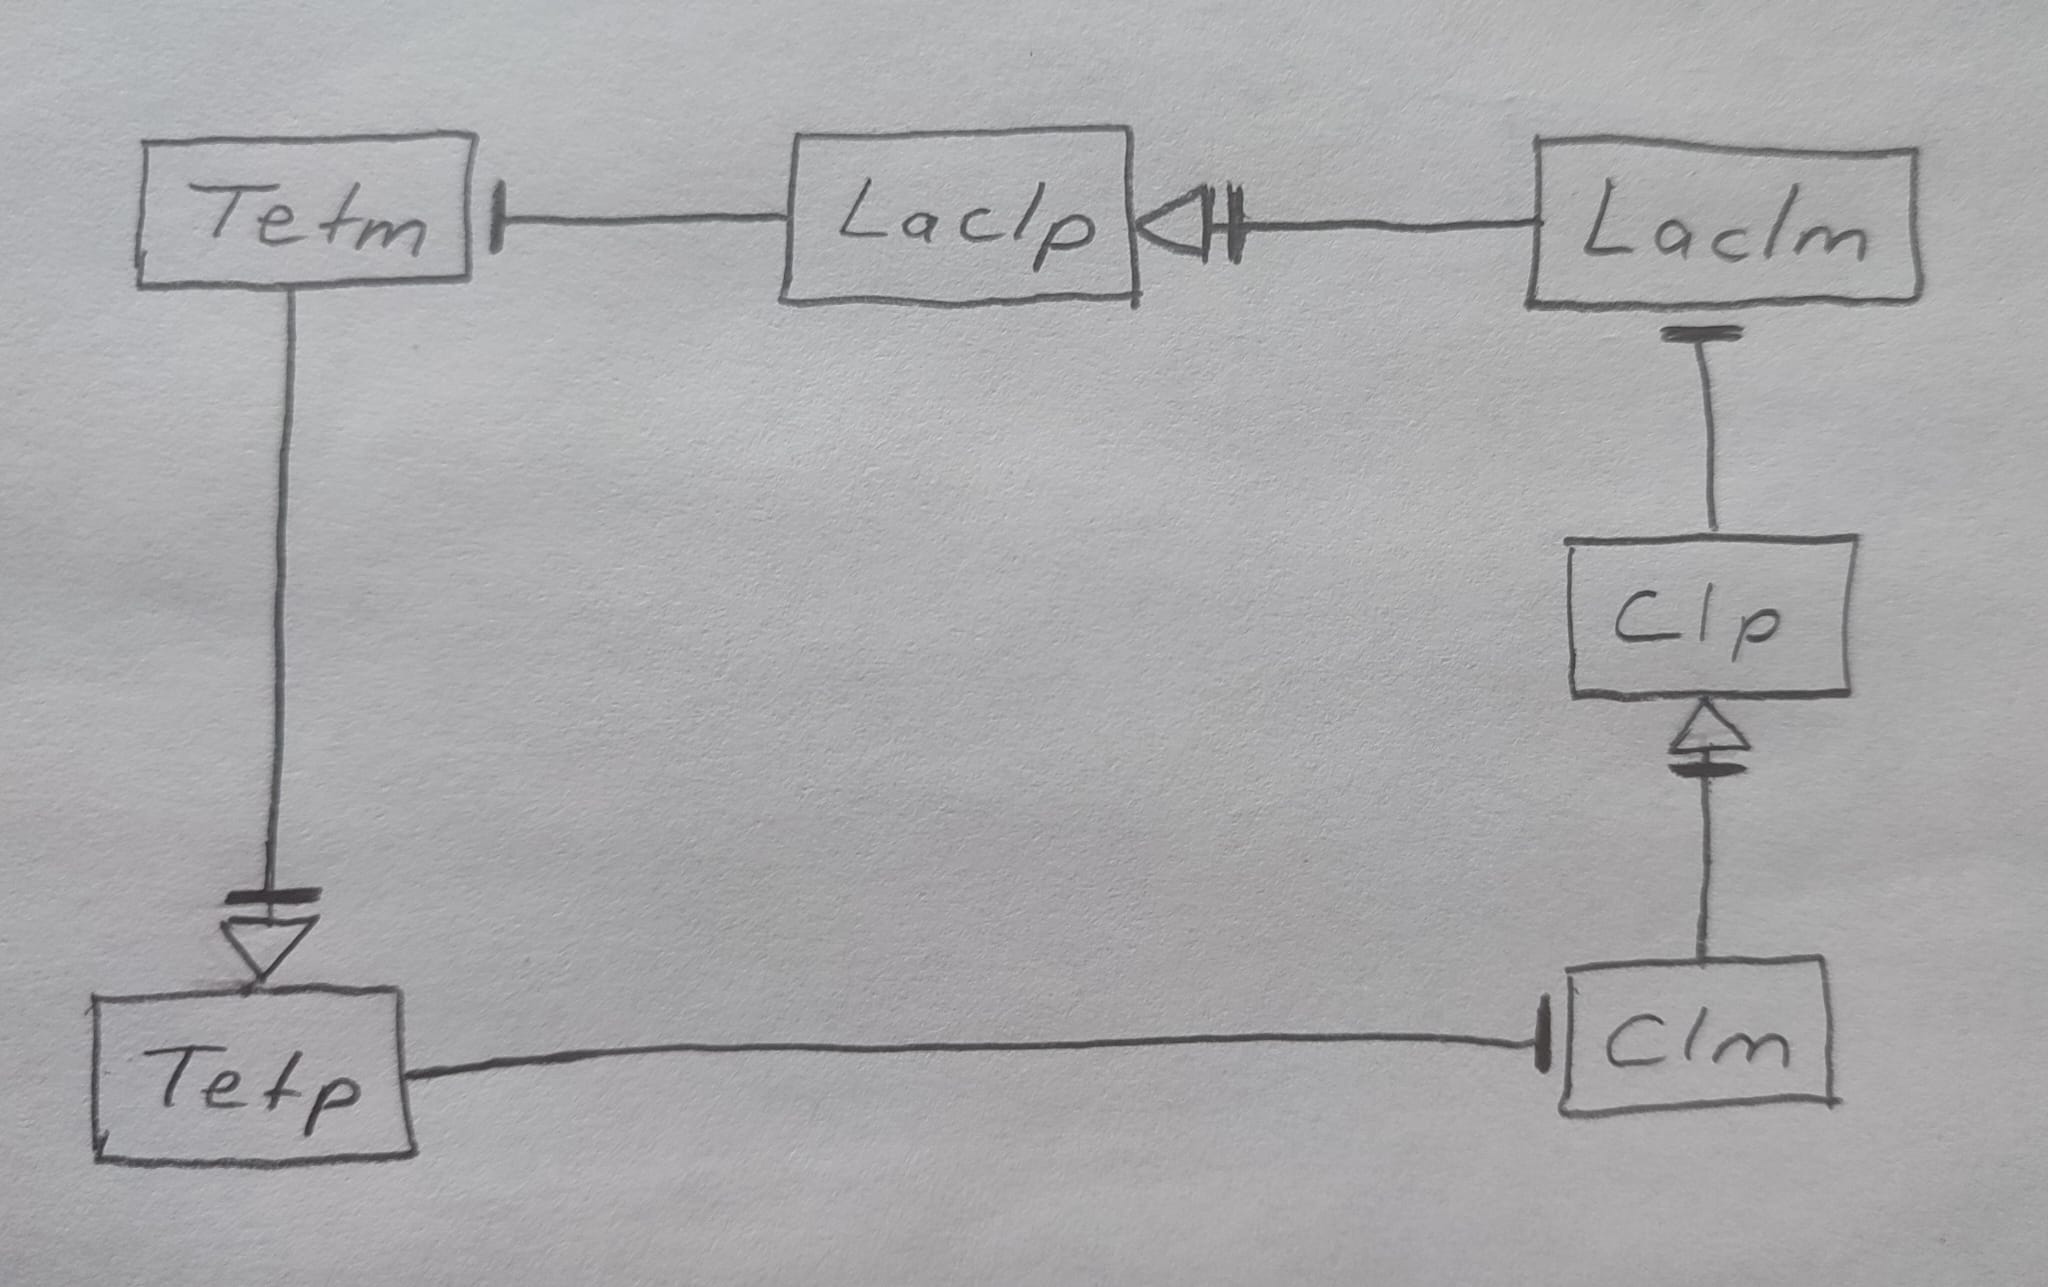 Tetm
Laclp
Laclm
Clp
Tetp
Clm